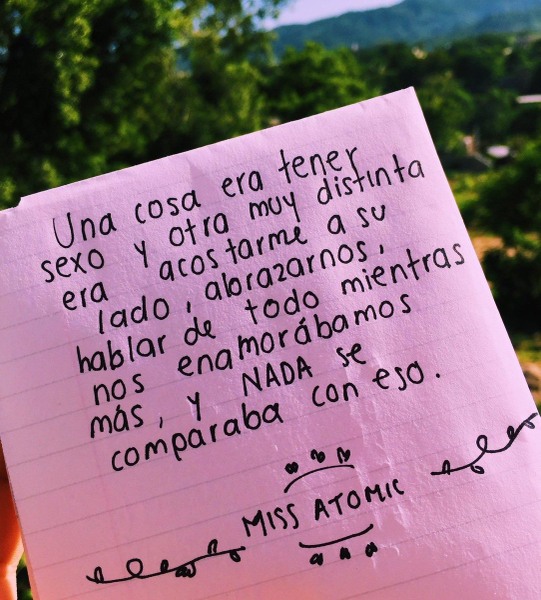 Una cosa era tener
sexo y otra muy distinta
era acostarme a su
lado, abrazarnos,
hablar de todo mientras
nos enamorábamos
más, y NADA se
comparaba con eso.
MISS ATOMIC